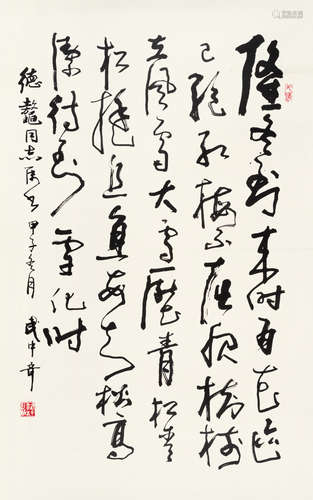 隆冬到来时百花迹
已绝红梅不屈服树树
立风雪大雪压青松青
松挺且直要知松高
洁待到雪化时
德鼇同志属书 甲子冬月 武中奇